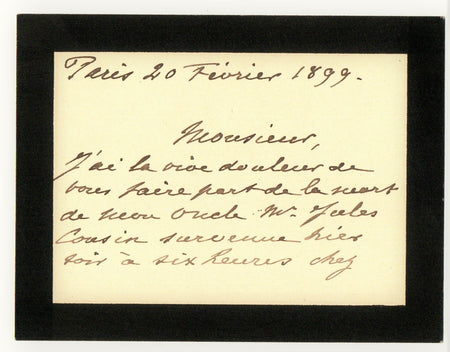 Paris 20 Février 1899.
Monsieur,
J'ai la vive douleur de
vous faire part de la mort
de mon Oncle Mr. Jules
Cousin survenue hier
soir à six heures chez